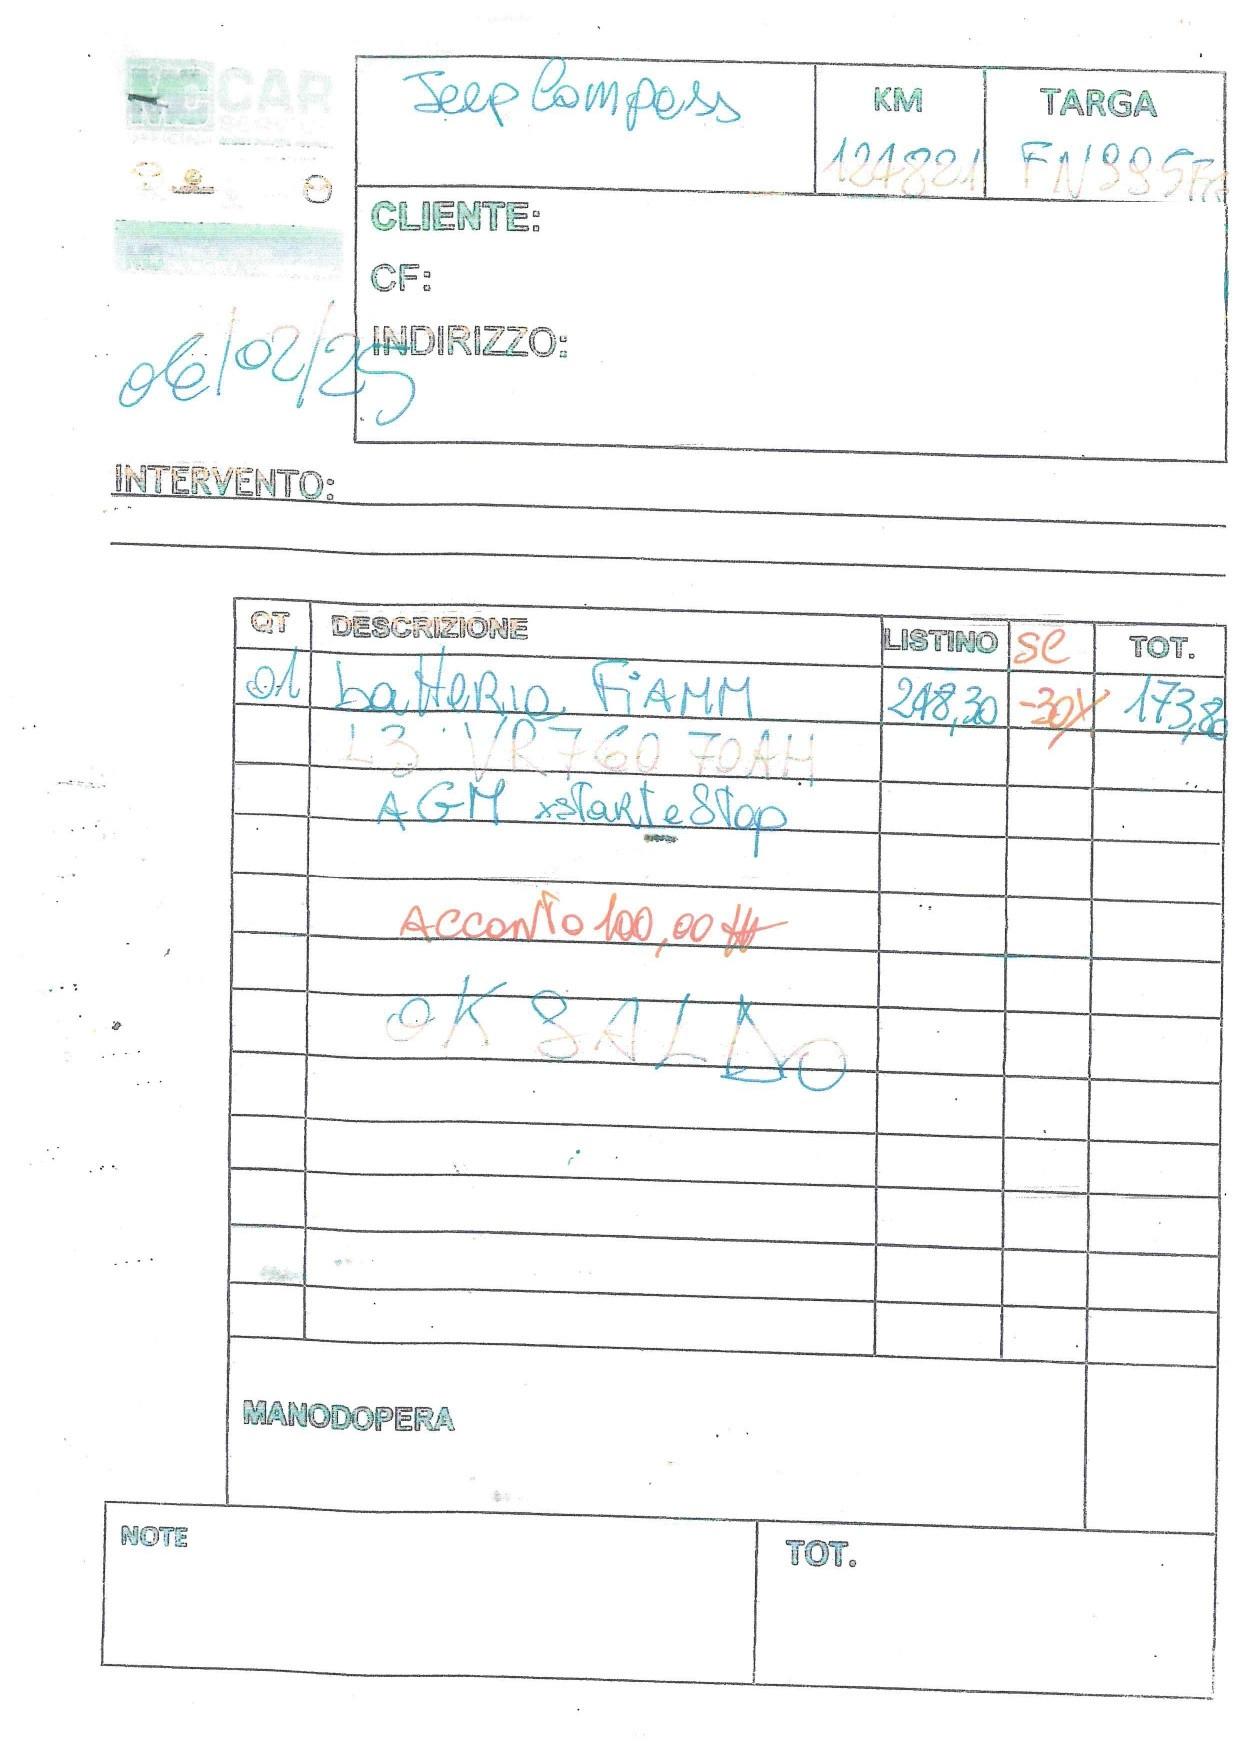 MC CAR
Jeep Compass
KM
TARGA
124821
CLIENTE:
CF:
INDIRIZZO:
06/02/25
INTERVENTO:
QT DESCRIZIONE LISTINO SC TOT.
01 batteria FiAMM 248,30 -30% 173,80
L3 VR760 70AH
AGM xstart e Stop
Acconto 100,00
OK SALDO
MANODOPERA
NOTE
TOT.